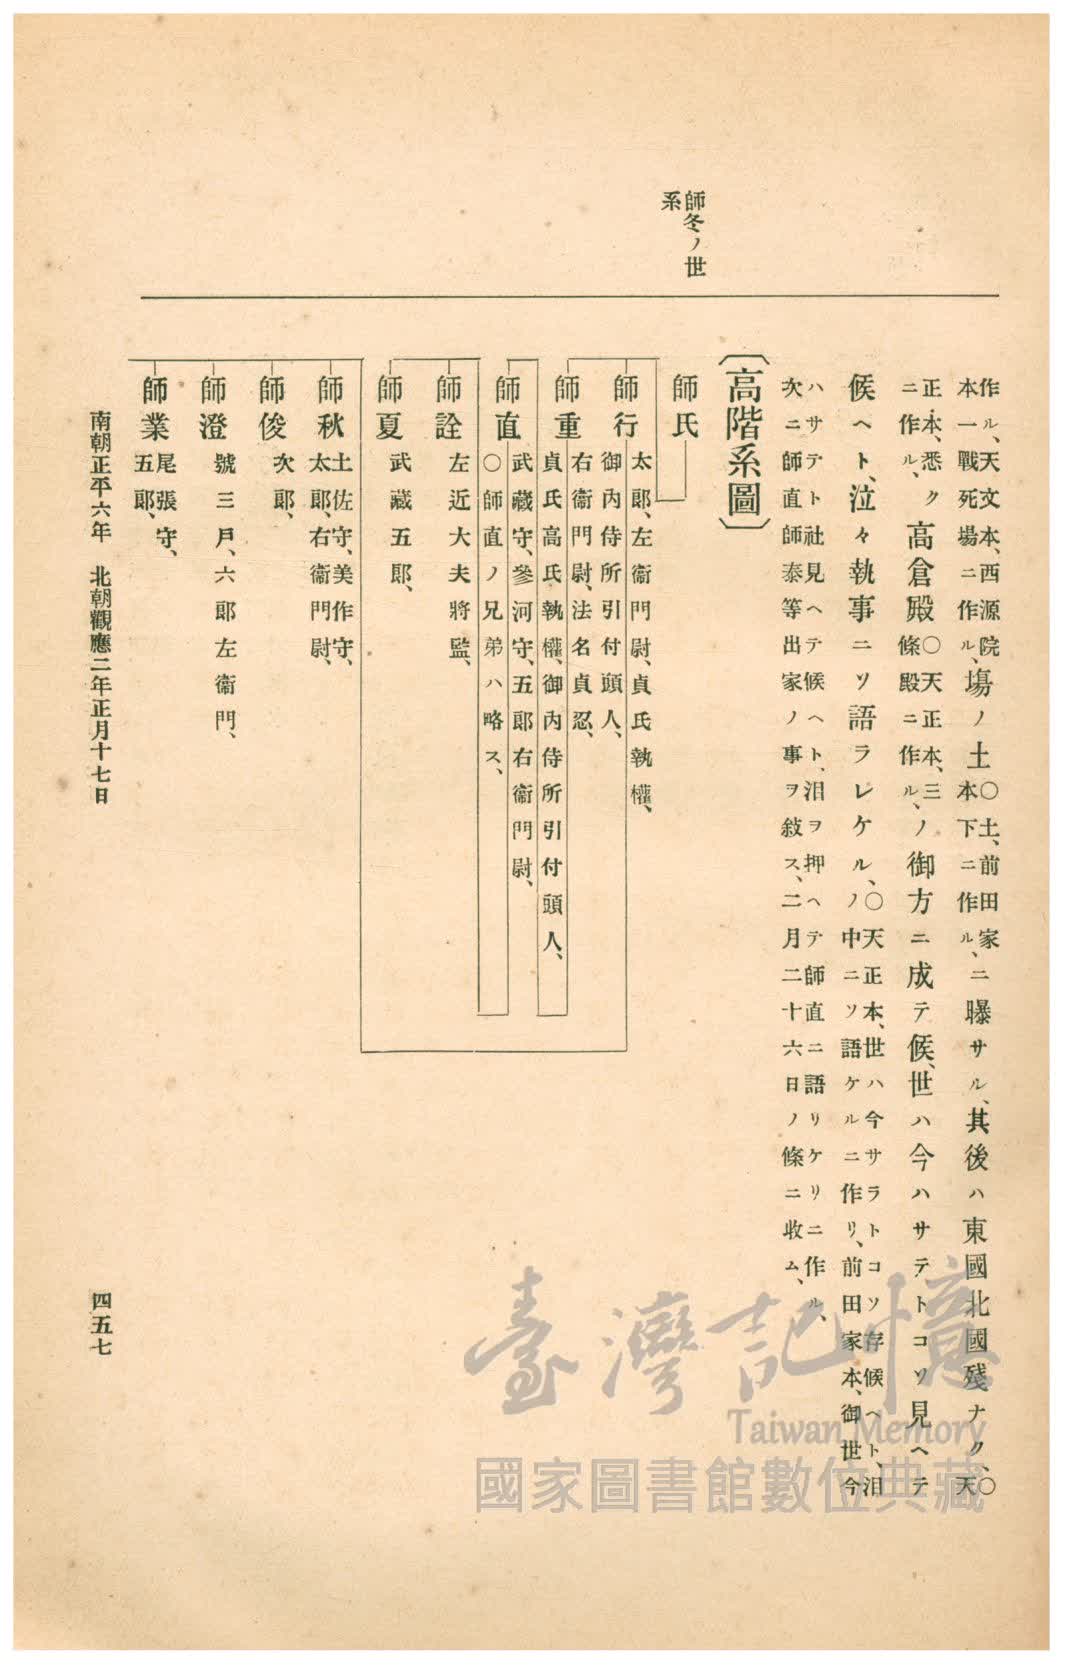 師冬ノ世
系
作ル、天文本、西源院
本一戰死場ニ作ル、
塲ノ土
〇土、前田家
本下ニ作ル、
ニ曝サル、其後ハ東國北國殘ナク、
〇
天
正本、悉ク
ニ作ル、
高倉殿
〇天正本、三
條殿ニ作ル、
ノ御方ニ成テ候、世ハ今ハサテトコソ見ヘテ
候ヘト、泣々執事ニソ語ラレケル、
〇天正本、世ハ今サラトコソ存候ヘト、泪
ノ中ニソ語ケルニ作リ、前田家本、御世今
ハサテト社見ヘテ候ヘト、泪ヲ押ヘテ師直ニ語リケリニ作ル、
次ニ師直師泰等出家ノ事ヲ敍ス、二月二十六日ノ條ニ收ム、
〔高階系圖〕
師氏
師行
太郎、左衞門尉、貞氏執權、
御內侍所引付頭人、
師重
右衞門尉、法名貞忍、
貞氏高氏執權、御內侍所引付頭人、
師直
武藏守、參河守、五郎右衞門尉、
〇師直ノ兄弟ハ略ス、
師詮
左近大夫將監、
師夏
武藏五郎、
師秋
土佐守、美作守、
太郎、右衞門尉、
師俊
次郎、
師澄
號三戸、六郎左衞門、
師業
尾張守、
五郎、
南朝正平六年 北朝觀應二年正月十七日
四五七
臺灣記憶
Taiwan Memory
國家圖書館數位典藏